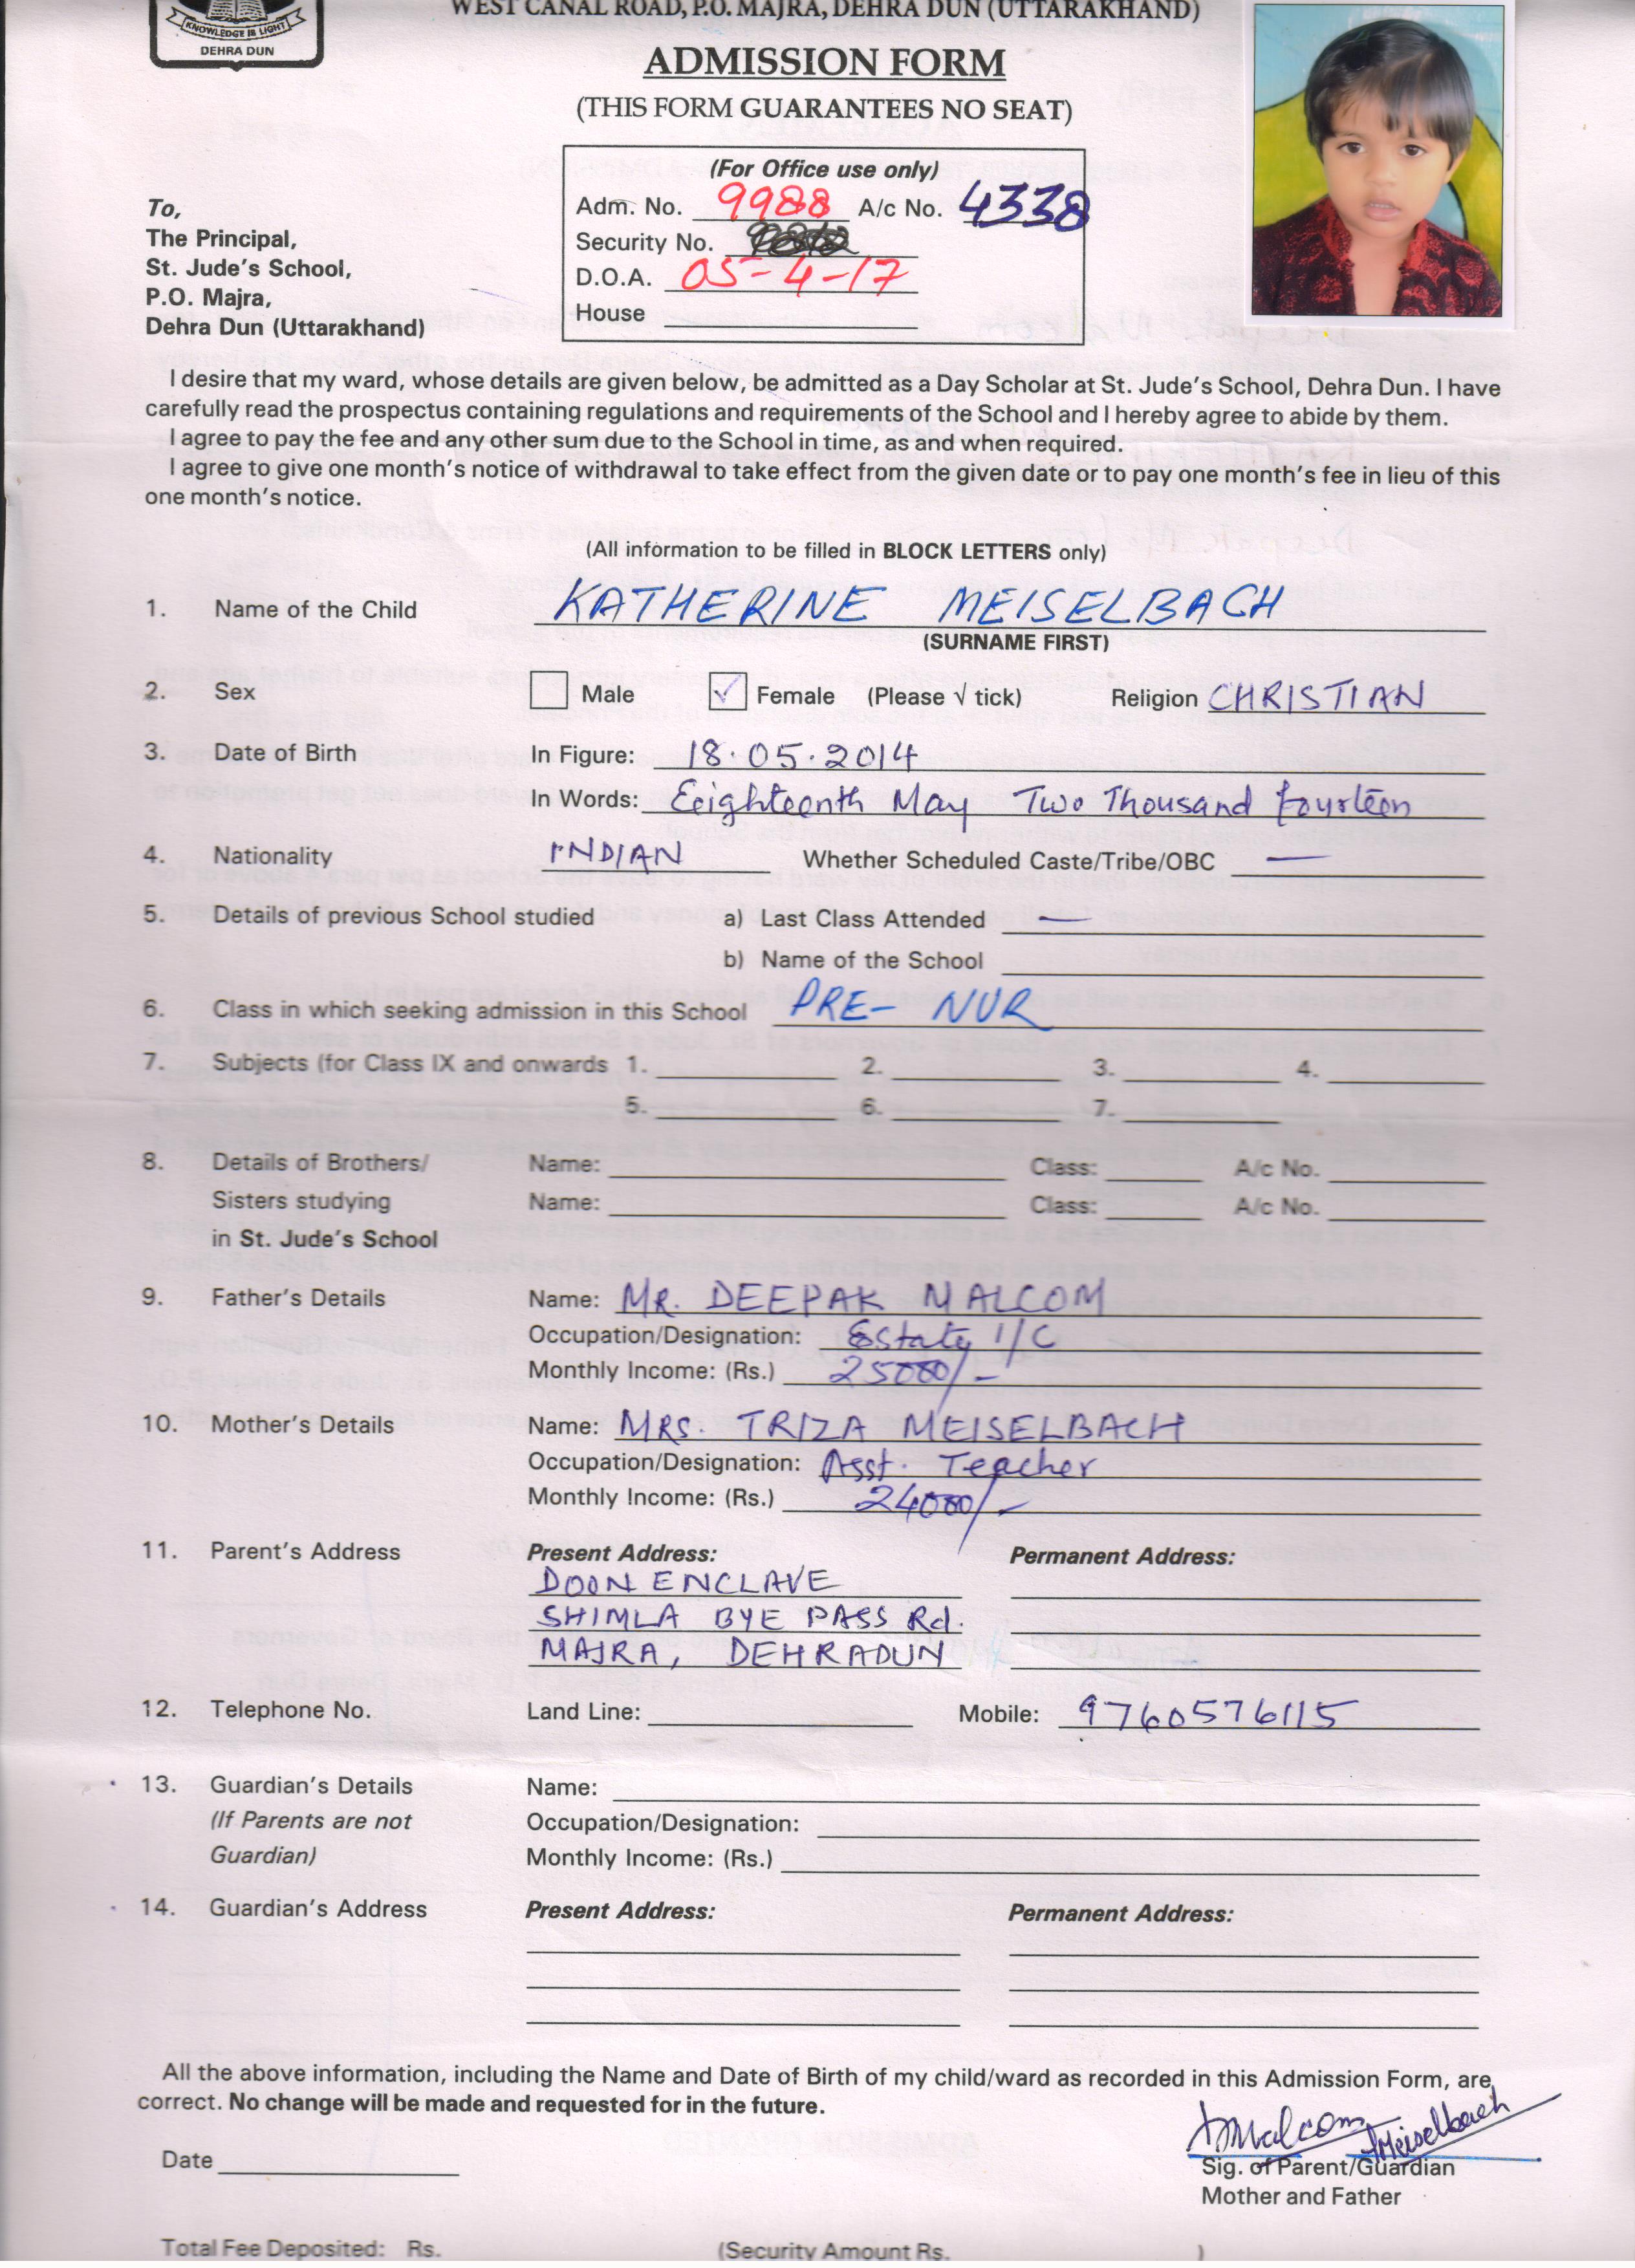 WEST CANAL ROAD, P.O. MAJRA, DEHRA DUN (UTTARAKHAND)
KNOWLEDGE IS LIGHT
DEHRA DUN
ADMISSION FORM
(THIS FORM GUARANTEES NO SEAT)
(For Office use only)
Adm. No. 9988 A/c No. 4338
Security No.
D.O.A. 05-4-17
House
To,
The Principal,
St. Jude's School,
P.O. Majra,
Dehra Dun (Uttarakhand)
I desire that my ward, whose details are given below, be admitted as a Day Scholar at St. Jude's School, Dehra Dun. I have
carefully read the prospectus containing regulations and requirements of the School and I hereby agree to abide by them.
I agree to pay the fee and any other sum due to the School in time, as and when required.
I agree to give one month's notice of withdrawal to take effect from the given date or to pay one month's fee in lieu of this
one month's notice.
(All information to be filled in BLOCK LETTERS only)
1. Name of the Child KATHERINE MEISELBACH
(SURNAME FIRST)
2. Sex Male ✓ Female (Please √ tick) Religion CHRISTIAN
3. Date of Birth In Figure: 18.05.2014
In Words: Eeighteenth May Two Thousand fourteen
4. Nationality INDIAN Whether Scheduled Caste/Tribe/OBC —
5. Details of previous School studied a) Last Class Attended —
b) Name of the School
6. Class in which seeking admission in this School PRE- NUR
7. Subjects (for Class IX and onwards 1. 2. 3. 4.
5. 6. 7.
8. Details of Brothers/ Name: Class: A/c No.
Sisters studying Name: Class: A/c No.
in St. Jude's School
9. Father's Details Name: MR. DEEPAK MALCOM
Occupation/Designation: Estate I/C
Monthly Income: (Rs.) 25000/-
10. Mother's Details Name: MRS. TRIZA MEISELBACH
Occupation/Designation: Asst. Teacher
Monthly Income: (Rs.) 24000/-
11. Parent's Address Present Address: Permanent Address:
DOON ENCLAVE
SHIMLA BYE PASS Rd.
MAJRA, DEHRADUN
12. Telephone No. Land Line: Mobile: 9760576115
13. Guardian's Details Name:
(If Parents are not Occupation/Designation:
Guardian) Monthly Income: (Rs.)
14. Guardian's Address Present Address: Permanent Address:
All the above information, including the Name and Date of Birth of my child/ward as recorded in this Admission Form, are
correct. No change will be made and requested for in the future.
DMalcom TMeiselbach
Date Sig. of Parent/Guardian
Mother and Father
Total Fee Deposited: Rs. (Security Amount Rs. )